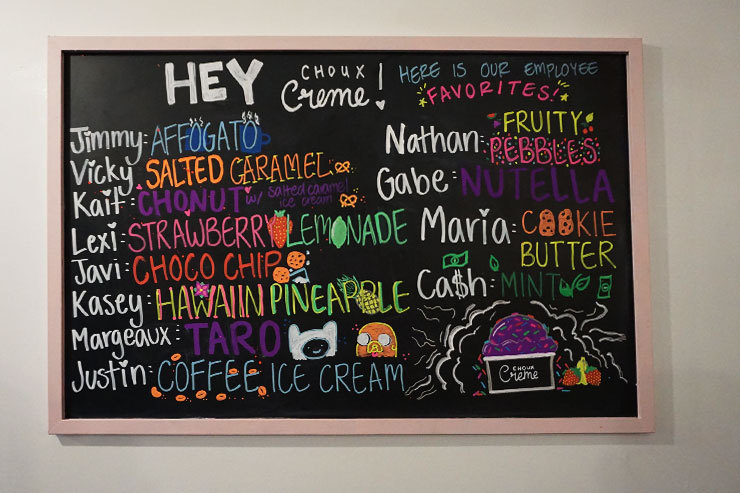 HEY CHOUX Creme! HERE IS OUR EMPLOYEE
*FAVORITES!*
Jimmy: AFFOGATO
Vicky: SALTED CARAMEL
Kait: CHONUT w/ salted caramel
ice cream
Lexi: STRAWBERRY LEMONADE
Javi: CHOCO CHIP
Kasey: HAWAIIN PINEAPPLE
Margeaux: TARO
Justin: COFFEE ICE CREAM
Nathan: FRUITY
PEBBLES
Gabe: NUTELLA
Maria: COOKIE
BUTTER
Ca$h: MINT
CHOUX
Creme